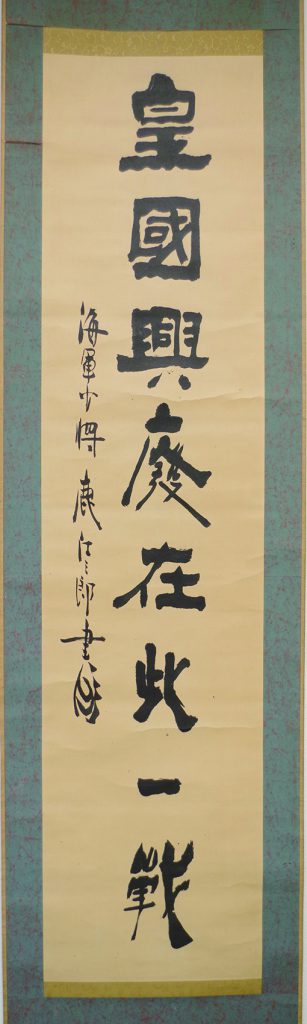 皇國興廢在此一戰
海軍少将 鹿江三郎書